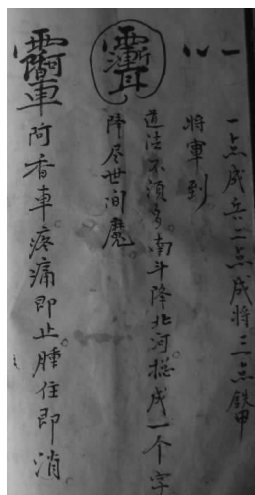 一点成兵二点成将三点鉄甲
將軍到
道法不須多。南斗降北河。捴成一个字
降尽世间魔。
阿香車。疼痛即止腫住即消。